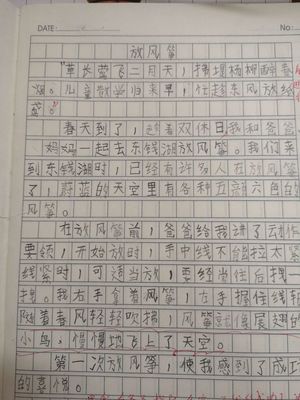 DATE:
No:
放风筝
"草长莺飞二月天，拂堤杨柳醉春
烟。儿童散学归来早，忙趁东风放纸
鸢。"
春天到了，趁着双休日我和爸爸
妈妈一起去东钱湖放风筝。我们来
到东钱湖时，已经有许多人在放风筝
了，蔚蓝的天空里有各种五颜六色的
风筝。
在放风筝前，爸爸给我讲了动作
要领，开始放时，手中线不能拉太紧
线紧时，可适当放，要经常往后拽
拽。我右手拿着风筝，左手握住线
随着春风轻轻吹拂，风筝就像展翅的
小鸟，慢慢地飞上了天空。
第一次放风筝，使我感到了成功
的喜悦。